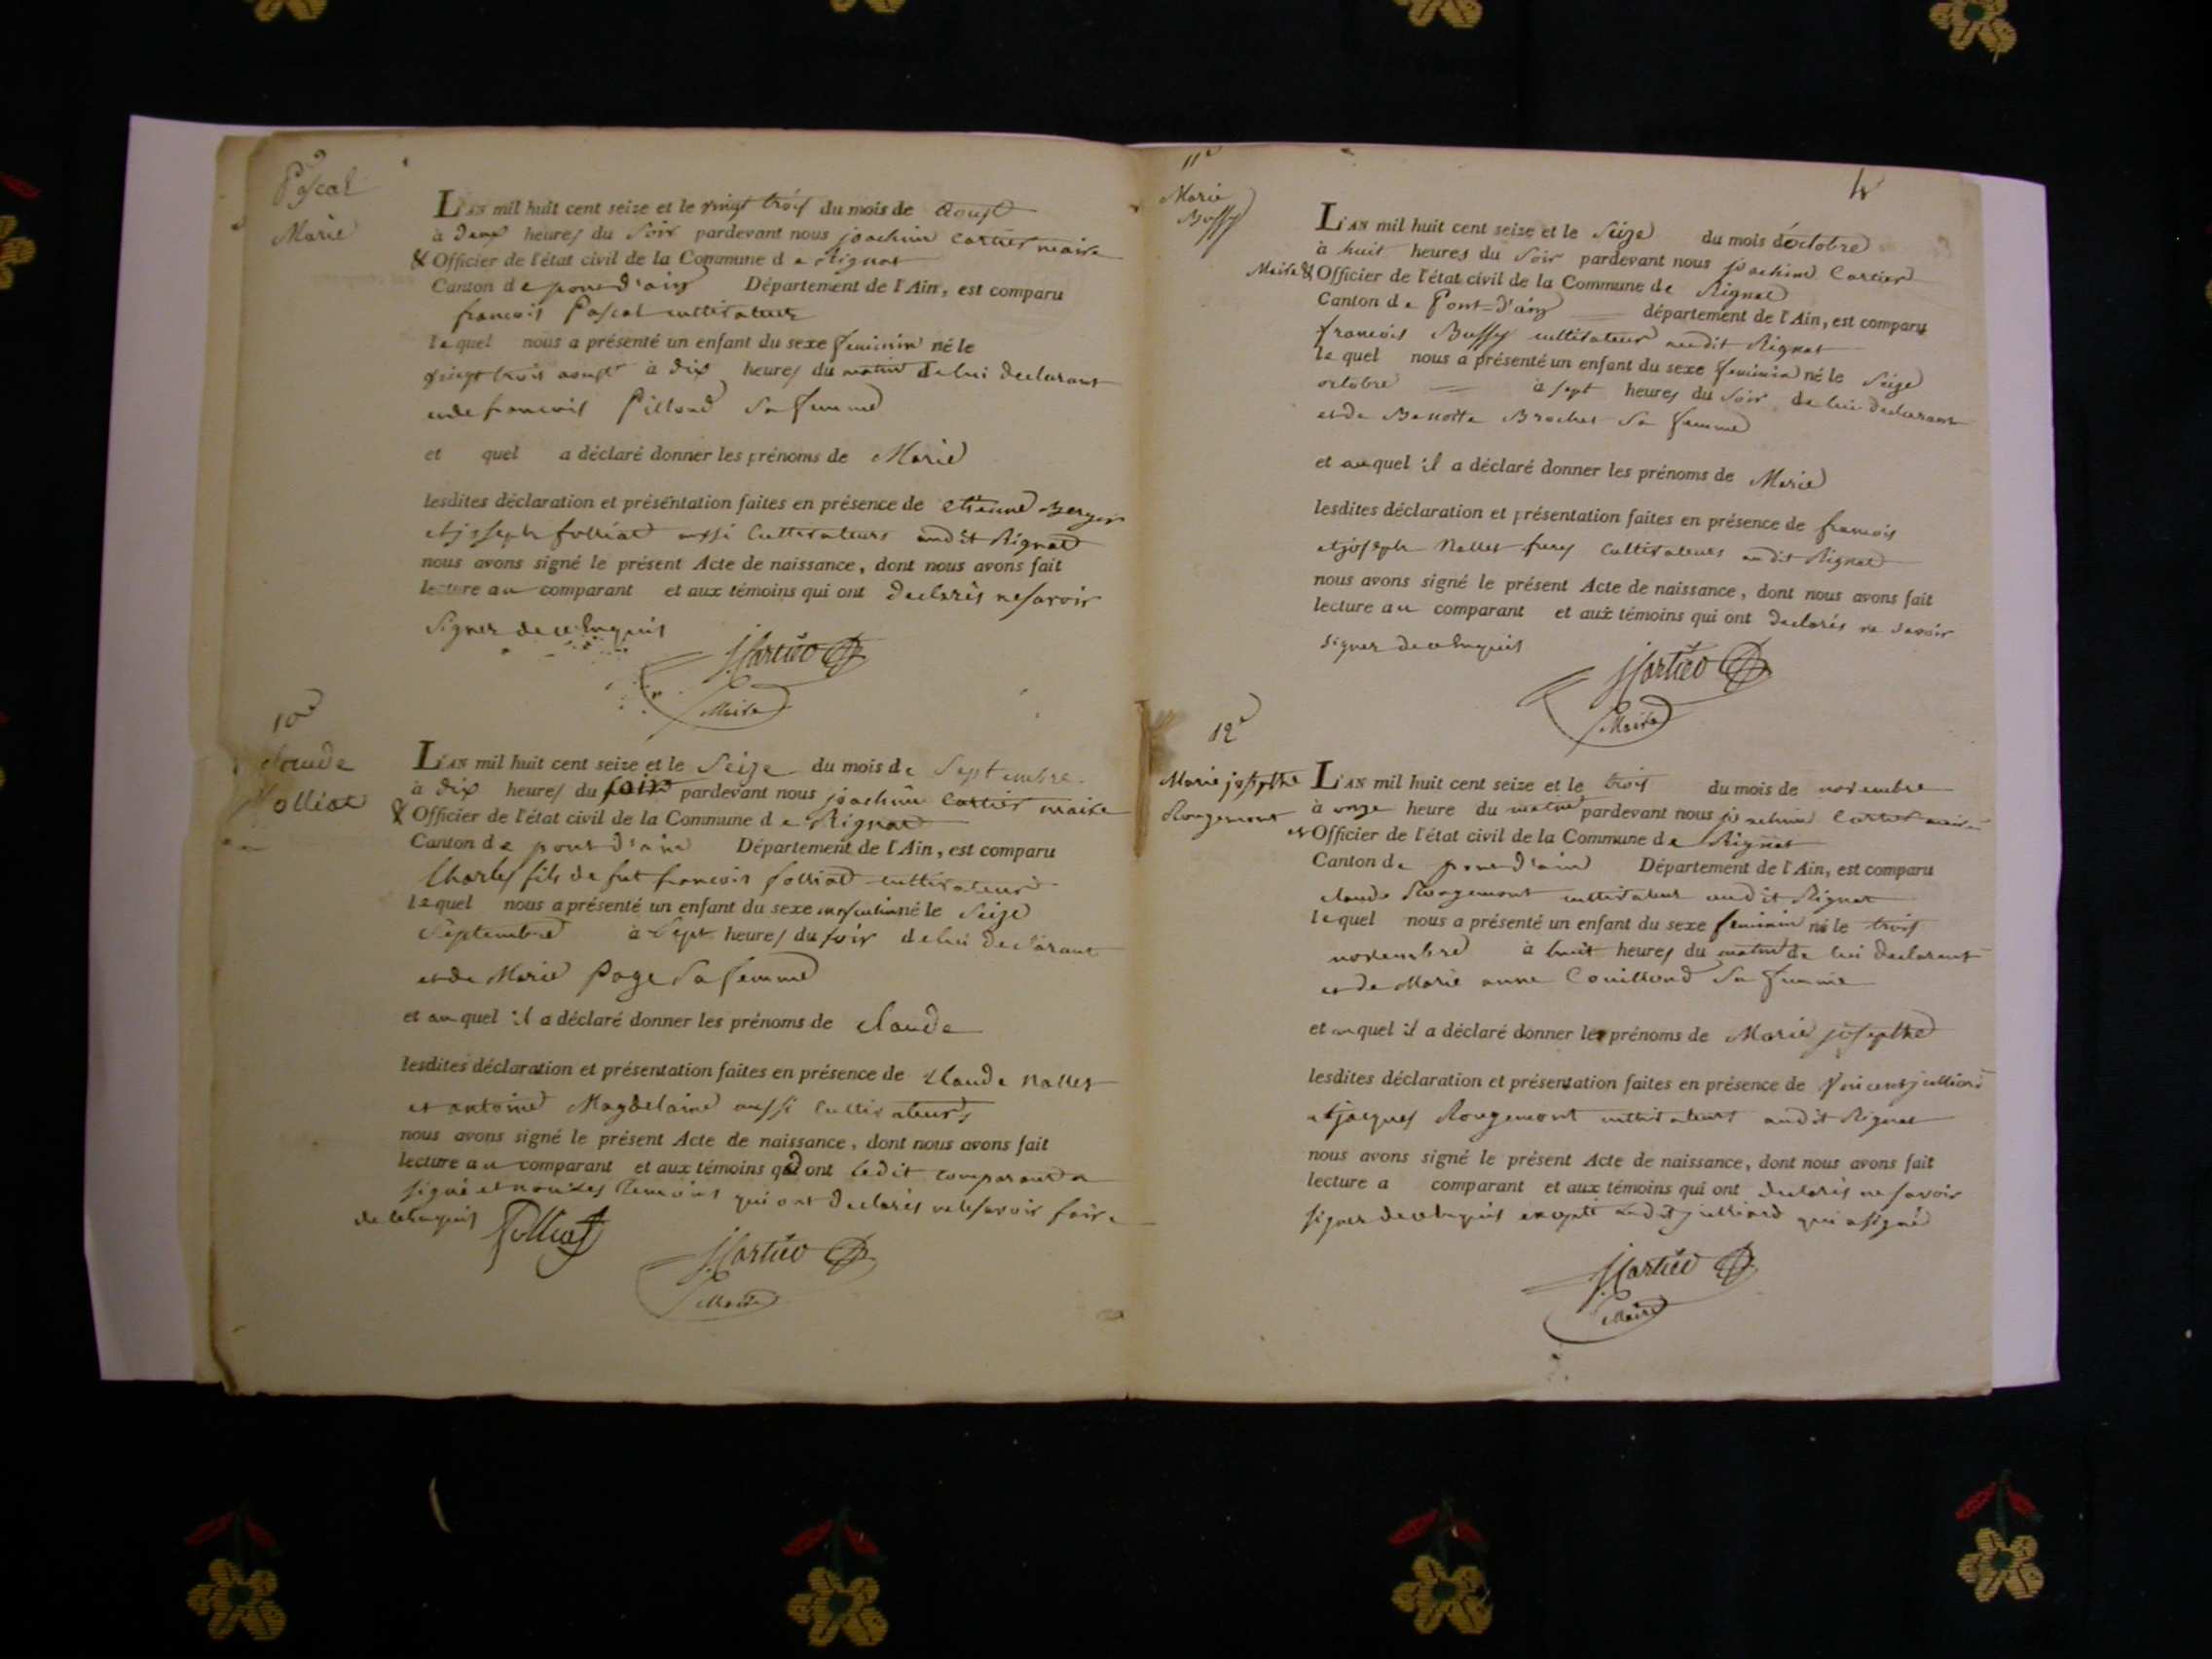 9
Pascal
Marie
L'AN mil huit cent seize et le vingt trois du mois de Aoust
à deux heures du Soir pardevant nous joachim Cartier maire
& Officier de l'état civil de la Commune de Rignat
Canton de pont d'ain Département de l'Ain, est comparu
francois Pascal cultivateur
lequel nous a présenté un enfant du sexe feminin né le
vingt trois aoust à dix heures du matin de lui declarant
et de francoise Pilloud Sa femme
et quel a déclaré donner les prénoms de Marie
lesdites déclaration et présentation faites en présence de etienne Berger
et joseph folliat aussi Cultivateurs audit Rignat
nous avons signé le présent Acte de naissance, dont nous avons fait
lecture au comparant et aux témoins qui ont declarés ne savoir
Signer de ce Enquis
JCartier
Maire
10e
Claude
folliat
L'AN mil huit cent seize et le Seize du mois de Septembre
à dix heures du soir pardevant nous joachim Cartier maire
& Officier de l'état civil de la Commune de Rignat
Canton de pont d'ain Département de l'Ain, est comparu
Charles fils de fut francois folliat cultivateur
lequel nous a présenté un enfant du sexe masculin né le Seize
Septembre à Sept heures du soir de lui declarant
et de Marie Page Sa femme
et au quel il a déclaré donner les prénoms de claude
lesdites déclaration et présentation faites en présence de Claude Nallet
et antoine Magdelaine aussi Cultivateurs
nous avons signé le présent Acte de naissance, dont nous avons fait
lecture au comparant et aux témoins qui ont ledit comparant a
signé et non les temoins qui ont declarés ne le savoir faire
de ce Enquis folliat
JCartier
Maire
4
11e
Marie
Buffy
L'AN mil huit cent seize et le Seize du mois d'octobre
à huit heures du Soir pardevant nous joachim Cartier
Maire & Officier de l'état civil de la Commune de Rignat
Canton de Pont-d'ain département de l'Ain, est comparu
francois Buffy cultivateur audit Rignat
lequel nous a présenté un enfant du sexe feminin né le Seize
octobre à sept heures du Soir de lui declarant
et de Benoitte Brochet Sa femme
et auquel il a déclaré donner les prénoms de Marie
lesdites déclaration et présentation faites en présence de francois
et joseph Nallet Cultivateurs audit Rignat
nous avons signé le présent Acte de naissance, dont nous avons fait
lecture au comparant et aux témoins qui ont declarés ne Savoir
signer de ce Enquis
JCartier
Maire
12e
Marie josepthe
Rougemont
L'AN mil huit cent seize et le trois du mois de novembre
à onze heure du matin pardevant nous joachim Cartier maire
et Officier de l'état civil de la Commune de Rignat
Canton de pont d'ain Département de l'Ain, est comparu
claude Rougemont cultivateur audit Rignat
lequel nous a présenté un enfant du sexe feminin né le trois
novembre à huit heures du matin de lui declarant
et de Marie anne Couilloud Sa femme
et auquel il a déclaré donner les prénoms de Marie josepthe
lesdites déclaration et présentation faites en présence de Vincent julliard
et jacques Rougemont cultivateurs audit Rignat
nous avons signé le présent Acte de naissance, dont nous avons fait
lecture a comparant et aux témoins qui ont declarés ne savoir
signer de ce Enquis excepté ledit julliard qui a signé
JCartier
Maire